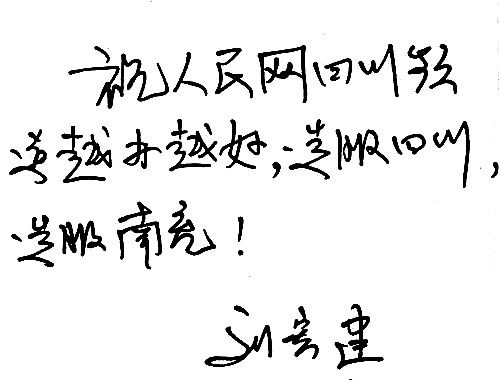 祝人民网四川频
道越办越好,造服四川,
造服南充!
刘宏建